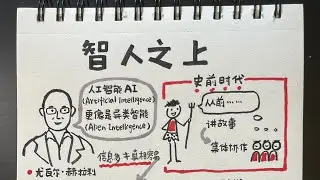 智人之上
人工智能 AI
(Artificial Intelligence)
更像是异类智能
(Alien Intelligence)
尤瓦尔·赫拉利
信息多≠真相
史前时代
从前……
讲故事
集体协作